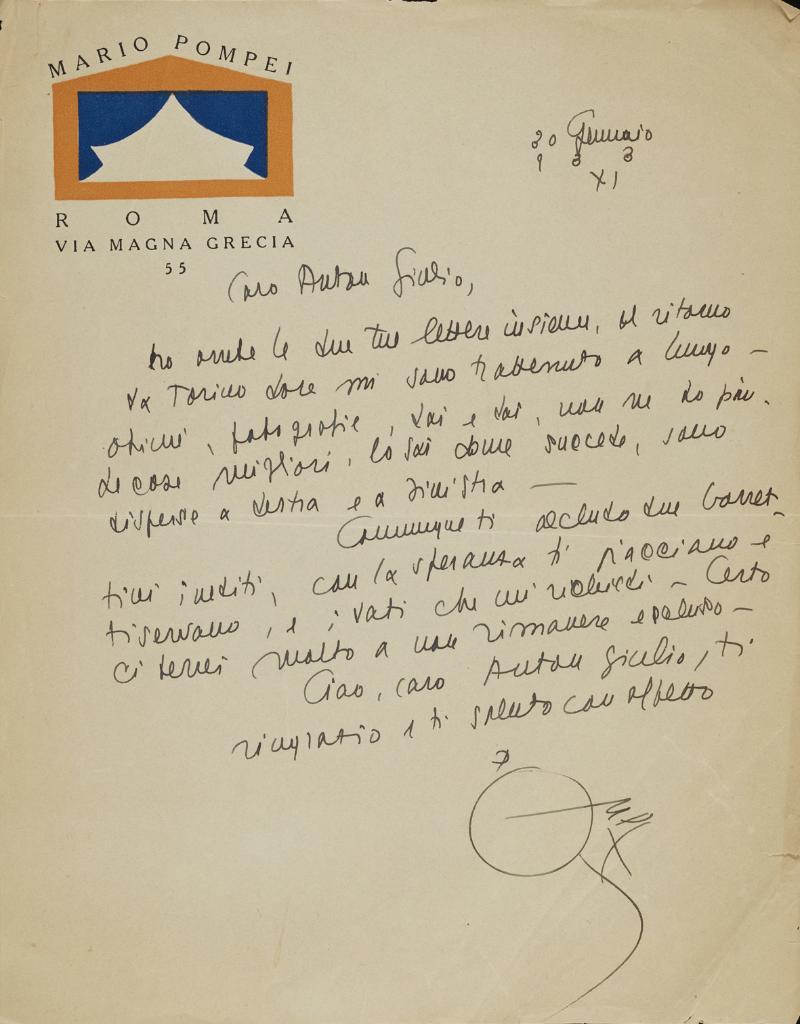 MARIO POMPEI
ROMA
VIA MAGNA GRECIA
55
30 Gennaio
933
XI
Caro Anton Giulio,
ho avute le due tue lettere insieme, al ritorno
da Torino dove mi sono trattenuto a lungo -
, fotografie, sai e sai, non ne ho più.
Le cose migliori, lo sai come succede, sono
disperse a destra e a sinistra —
Comunque ti accludo due bozzet-
tini inediti, con la speranza ti piacciano e
ti servano, e i dati che mi richiedi - Certo
ci terrei molto a non rimanere escluso -
Ciao, caro Anton Giulio, ti
ringrazio e ti saluto con affetto